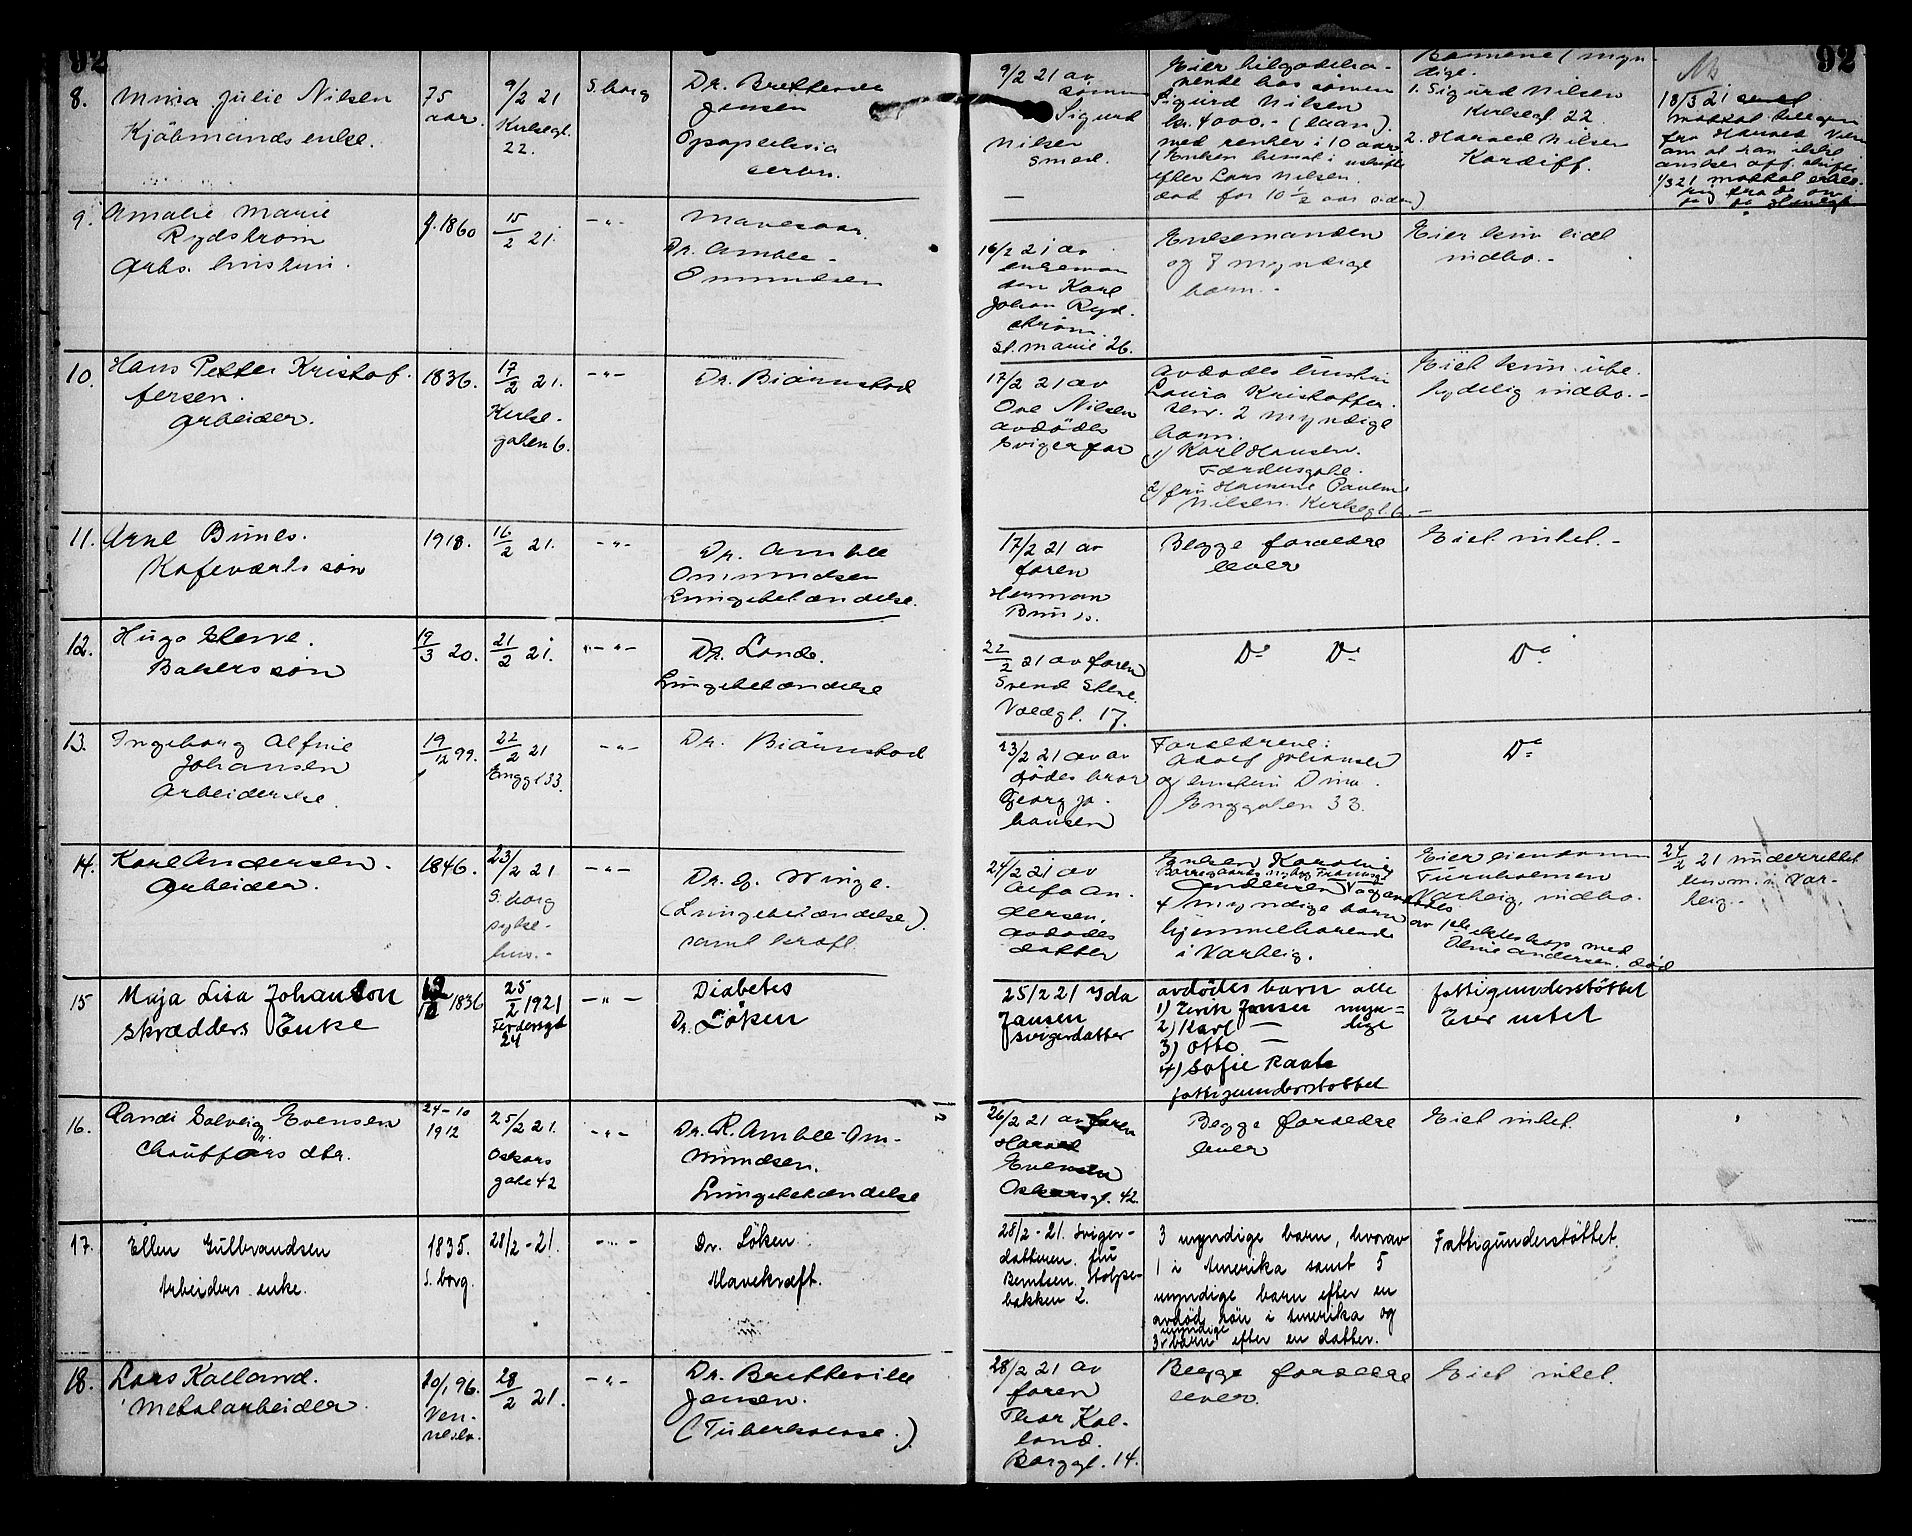 92
92
8. Mina Julie Nilsen
Kjöbmands enke.
75
aar.
9/2 21
Kirkegt.
22.
S.borg
Dr. Bretteville
Jensen
Apoplexia
9/2 21 av
sønnen
Sigurd
Nilsen
smed.
Eier tilgodeha-
vende hos sønnen
Sigurd Nilsen
kr. 4000.- (laan).
med renter i 10 aar
efter Lars Nilsen.
død for 10 1/2 aar siden)
Barnene (myn-
dige.
1. Sigurd Nilsen
Kirkegt. 22.
2. Harald Nilsen
Kardiff.
18/3 21
9. Amalie Marie
Rydstrøm
Arbs. hustru.
f. 1860
15/2 21.
-"-
Mavesaar.
Dr. Amble-
Ommundsen
16/2 21 av
enkeman
den Karl
Johan Ryd-
strøm.
St. Marie 26.
Enkemanden
og 7 myndige
barn.-
Eier kun lidt
indbo.-
10. Hans Petter Kristof-
fersen.
Arbeider.
1836.
17/2 21.
Kirke-
gaten 6.
-"-
Dr. Biørnstad
17/2 21 av
Ove Nilsen
avdödes
svigerfar
avdødes hustru
Laura Kristoffer-
sen. 2 myndige
barn.
1) Karl Hansen.
Færdersgate.
2) fru Pauline
Nilsen. Kirkegt. 6.-
Eiet kun ube-
tydelig indbo.-
11. Arne Bunes.
Kafeværts søn
1918.
16/2 21.
-"-
Dr. Amble
Ommundsen
Lungebetændelse.
17/2 21 av
faren
Herman
Bunes.
Begge forældre
lever
Eiet intet.-
12. Hugo Stene.
Bakers søn
19/3 20.
21/2 21.
"-"-
Dr. Lande.
Lungebetændelse
22/2 21 av faren
Svend Stene.
Voldgt. 17.
Do Do
Do
13. Ingeborg Alfine
Johansen
Arbeiderske.
19/12 99.
22/2 21
Enggt 33.
-"-
Dr. Biørnstad
23/2 21 av av
dødes bror
Georg Jo-
hansen
Forældrene:
Adolf Johansen
og hustru Dina.
Enggaten 33.
Do
14. Karl Andersen.
Arbeider.
1846.
23/2 21
S.borg
syke-
hus.-
-"-
Dr. G. Winge.
(Lungebetændelse).
samt kræft.
24/2 21 av
Alfa An-
dersen.
avdødes
datter
Enken Karoline
Andersen
4 myndige barn
hjemmehørende
i Varteig.
av 1ste ekteskap med
Andersen. død
Eier eiendommen
Furuholmen
Varteig, indbo.
24/2 21 underrettet
lensm. i Var-
teig.-
15 Maja Lisa Johanson
skrædders Enke
1836
25/2 1921
Ferdersgt
24
-"-
Diabetes
Dr. Löken
25/2 21 Ida
Jansen
svigerdatter
avdødes barn alle
1) Erik Jansen myn-
2) Karl - dige
3) Otto -
4) Sofie Raake
fattigunderstøttet
fattigunderstöttet
Eier intet
16. Randi Solveig Evensen
Chaufførs dtr.
24-10
1912
25/2 21.
Oskars
gate 42
-"-
Dr. R. Amble-Om-
mundsen.
Lungebetændelse
26/2 21 av faren
Harald
Evensen
Oskarsgt. 42.
Begge forældre
lever
Eiet intet.
17. Ellen Gulbrandsen
Arbeiders enke.
1835.
S.borg.
28/2-21.
-"-
Dr. Löken
Mavekræft.
28/2-21. Sviger-
datteren fru
Berntsen. Stolpe-
bakken 2.
3 myndige barn, hvorav
1 i Amerika samt 5
myndige barn efter en
avdød søn i Amerika og
3 myndige barn efter en datter.
Fattigunderstöttet.
18. Lars Kalland.
Metalarbeider.
20/1 96.
Ven-
nesla.
28/2 21.
-"-
Dr. Bretteville
Jensen.
(Tuberkulose.)
28/2 21 av
faren
Thor Kal-
land.
Borggt. 14.
Begge forældre
lever.
Eiet intet.